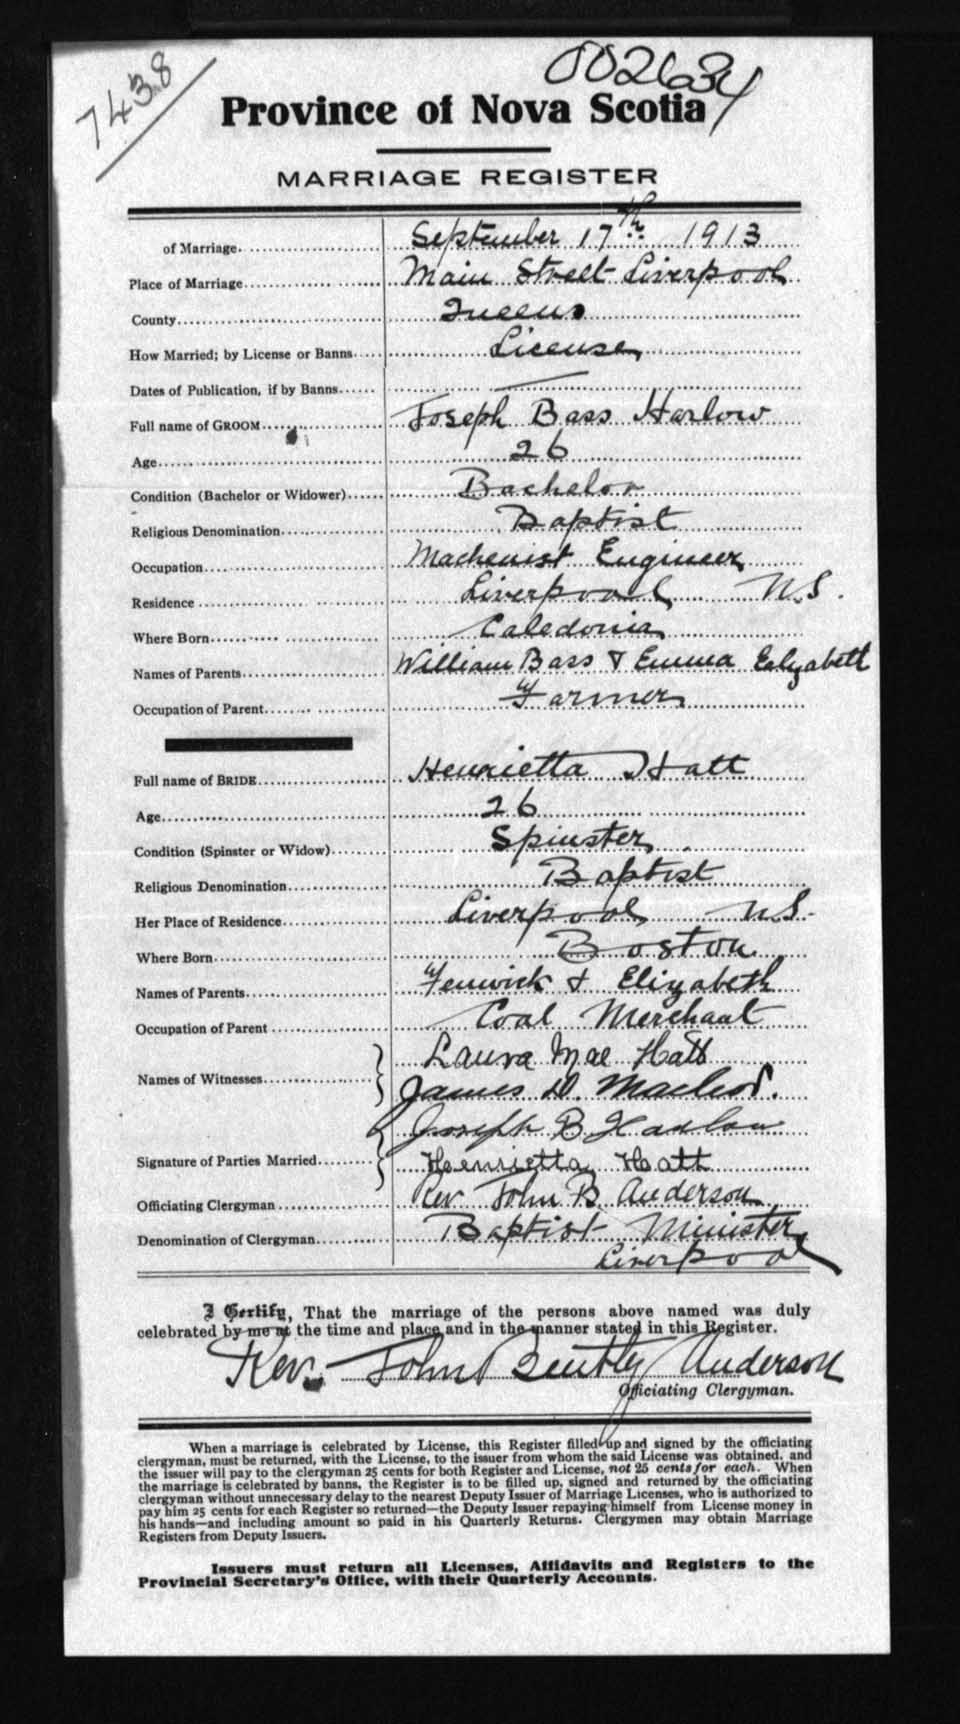 7438
002634
Province of Nova Scotia
MARRIAGE REGISTER
of Marriage. September 17th 1913
Place of Marriage Main Street Liverpool
County Queens
How Married; by License or Banns License
Dates of Publication, if by Banns —
Full name of GROOM Joseph Bass Harlow
Age 26
Condition (Bachelor or Widower) Bachelor
Religious Denomination Baptist
Occupation Machenist Engineer
Residence Liverpool N.S.
Where Born Caledonia
Names of Parents William Bass & Emma Ealyabett
Occupation of Parent Farmer
Full name of BRIDE Henrietta Hatt
Age 26
Condition (Spinster or Widow) Spinster
Religious Denomination Baptist
Her Place of Residence Liverpool N.S.
Where Born Boston
Names of Parents Fenwick & Elizabeth
Occupation of Parent Coal Merchant
Laura Mae Hatt
Names of Witnesses James D. Macleod.
Joseph B. Harlow
Signature of Parties Married Henrietta Hatt
Officiating Clergyman Rev. John B. Anderson
Denomination of Clergyman Baptist Minister
Liverpool
I Certify, That the marriage of the persons above named was duly
celebrated by me at the time and place and in the manner stated in this Register.
Rev. John Bently Anderson
Officiating Clergyman.
When a marriage is celebrated by License, this Register filled up and signed by the officiating
clergyman, must be returned, with the License, to the issuer from whom the said License was obtained, and
the issuer will pay to the clergyman 25 cents for both Register and License, not 25 cents for each. When
the marriage is celebrated by banns, the Register is to be filled up, signed and returned by the officiating
clergyman without unnecessary delay to the nearest Deputy Issuer of Marriage Licenses, who is authorized to
pay him 25 cents for each Register so returned—the Deputy Issuer repaying himself from License money in
his hands—and including amount so paid in his Quarterly Returns. Clergymen may obtain Marriage
Registers from Deputy Issuers.
Issuers must return all Licenses, Affidavits and Registers to the
Provincial Secretary's Office, with their Quarterly Accounts.